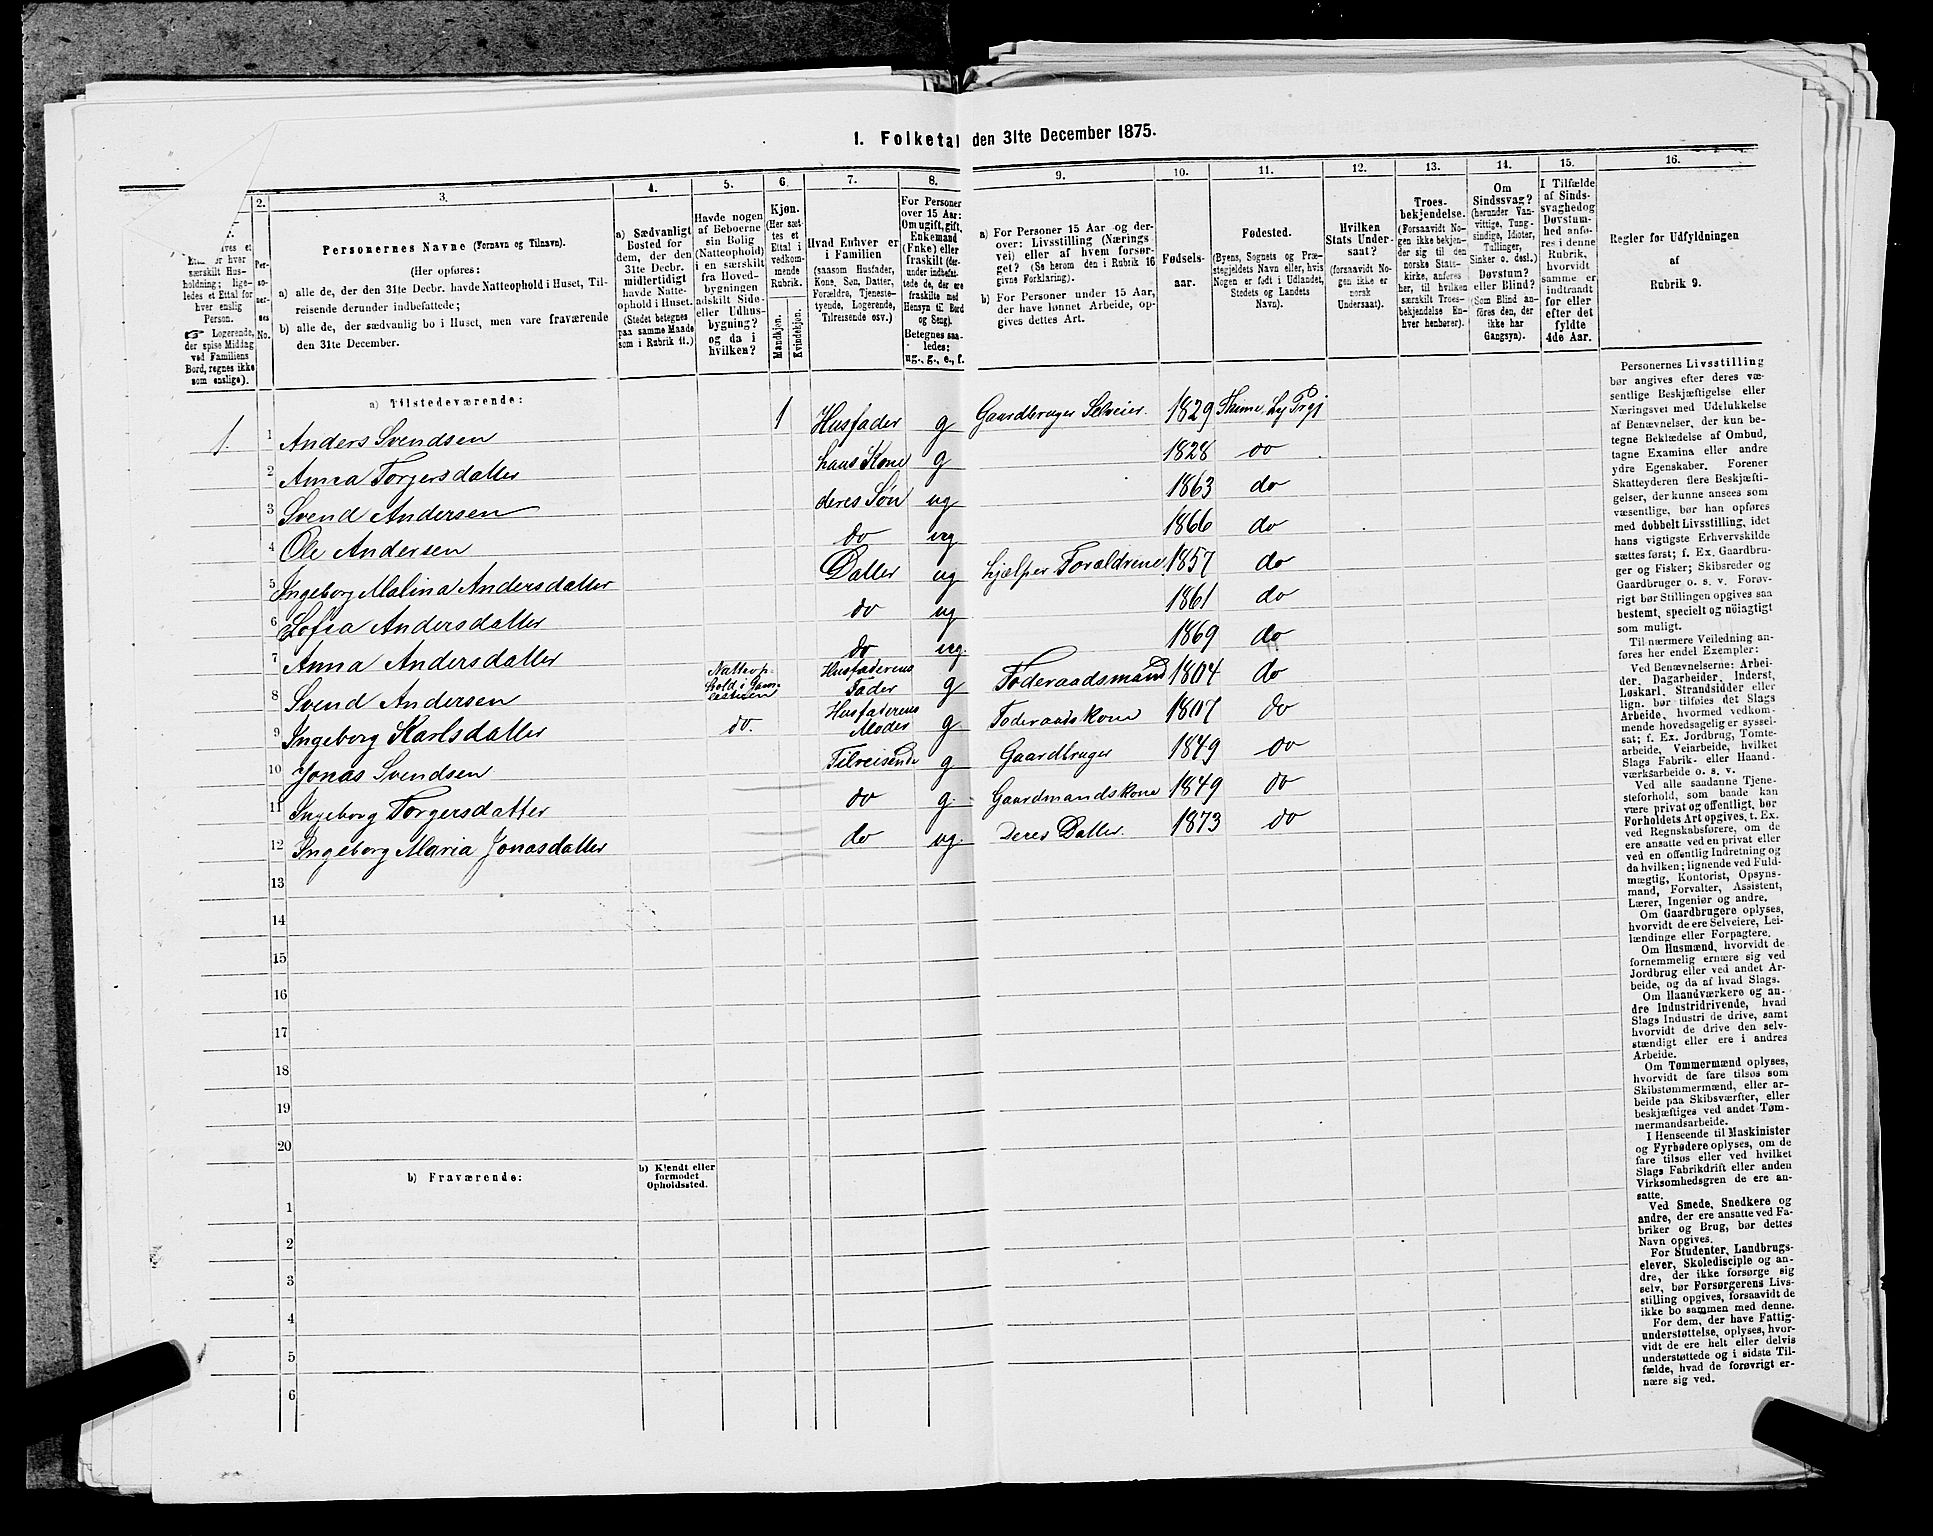 1. Folketal den 31te December 1875.
2. 3. 4. 5. 6. 7. 8. 9. 10. 11. 12. 13. 14. 15. 16.
særskilt Hus-
holdning; lige-
ledes et Ettal for
hver enslig
Person.
☞ Logerende,
der spise Middag
ved Familiens
Bord, regnes ikke
som enslige).
Per-
so-
ner-
nes
No.
Personernes Navne (Fornavn og Tilnavn).
(Her opføres:
a) alle de, der den 31te Decbr. havde Natteophold i Huset, Til-
reisende derunder indbefattede;
b) alle de, der sædvanlig bo i Huset, men vare fraværende
den 31te December.
a) Sædvanligt
Bosted for
dem, der den
31te Decbr.
midlertidigt
havde Natte-
ophold i Huset.
(Stedet betegnes
paa samme Maade
som i Rubrik 11.)
Havde nogen
af Beboerne
sin Bolig
(Natteophold)
i en særskilt
fra Hoved-
bygningen
adskilt Side-
eller Udhus-
bygning?
og da i
hvilken?
Kjøn.
(Her sæt-
tes et
Ettal i
vedkom-
mende
Rubrik.
Mandkjøn.
Kvindekjøn.
Hvad Enhver er
i Familien
(saasom Husfader,
Kone, Søn, Datter,
Forældre, Tjeneste-
tyende, Logerende,
Tilreisende osv.)
For Personer
over 15 Aar:
Om ugift, gift,
Enkemand
(Enke) eller
fraskilt (der-
under indbefat-
tede de, der ere
fraskilte med
Hensyn til Bord
og Seng).
Betegnes saa-
ledes:
ug., g., e., f.
a) For Personer 15 Aar og der-
over: Livsstilling (Nærings
vei) eller af hvem forsør-
get? (Se herom den i Rubrik 16
givne Forklaring).
b) For Personer under 15 Aar,
der have lønnet Arbeide, op-
gives dettes Art.
Fødsels-
aar.
Fødested.
(Byens, Sognets og Præ-
stegjeldets Navn eller, hvis
Nogen er født i Udlandet,
Stedets og Landets
Navn).
Hvilken
Stats Under-
saat?
(forsaavidt No-
gen ikke er
norsk
Undersaat).
Troes-
bekjendelse.
(Forsaavidt No-
gen ikke bekjen-
der sig til den
norske Stats-
kirke, anføres
her, til hvilken
særskilt Troes-
bekjendelse En-
hver henhører).
Om
Sindssvag?
(herunder Van-
vittige, Tung-
sindige, Idioter,
Tullinger,
Sinker o. desl.).
Døvstum?
eller Blind?
(Som Blind an-
føres den, der
ikke har
Gangsyn).
I Tilfælde
af Sinds-
svaghed og
Døvstum-
hed anfø-
res i denne
Rubrik,
hvorvidt
samme er
indtraadt
før eller
efter det
fyldte
4de Aar.
Regler før Udfyldningen
af
Rubrik 9.
a) Tilstedeværende:
1. 1 Anders Svendsen 1 Husfader g Gaardbruger Selveier. 1829 Ly
2 Anna Torgersdatter hans Kone g 1828 do
3 Svend Andersen deres Søn ug 1863 do
4 Ole Andersen do ug 1866 do
5 Ingeborg Malina Andersdatter Datter ug hjælper Forældrene 1857 do
6 Sofia Andersdatter do ug 1861 do
7 Anna Andersdatter do ug. 1869 do
8 Svend Andersen Natteop-
hold i Husfaderens
Fader g Føderaadsmand 1804 do
9 Ingeborg Karlsdatter do. Husfaderens
Moder g Føderaadskone 1807 do
10 Jonas Svendsen Tilreisende g Gaardbruger 1849 do
11 Ingeborg Torgersdatter do g. Gaardmandskone 1849 do
12 Ingeborg Maria Jonasdatter do ug. Deres Datter. 1873 do
13
14
15
16
17
18
19
20
b) Fraværende:
b) Kjendt eller
formodet
Opholdssted.
1
2
3
4
5
6
Personernes Livsstilling
bør angives efter deres væ-
sentlige Beskjæftigelse eller
Næringsvei med Udelukkelse
af Benævnelser, der kun be-
tegne Beklædelse af Ombud,
tagne Examina eller andre
ydre Egenskaber. Forener
Skatteyderen flere Beskjæfti-
gelser, der kunne ansees som
væsentlige, bør han opføres
med dobbelt Livsstilling, idet
hans vigtigste Erhvervskilde
sættes først; f. Ex. Gaardbru-
ger og Fisker; Skibsreder og
Gaardbruger o. s. v. Forøv-
rigt bør Stillingen opgives saa
bestemt, specielt og nöiagtigt
som muligt.
Til nærmere Veiledning an-
føres her endel Exempler:
Ved Benævnelserne: Arbei-
der, Dagarbeider, Inderst,
Løskarl, Strandsidder eller
lign. bør tilføies det Slags
Arbeide, hvormed vedkom-
mende hovedsagelig er syssel-
sat; f. Ex. Jordbrug, Tomte-
arbeide, Veiarbeide, hvilket
Slags Fabrik- eller Haand-
værksarbeide o. s. v.
Ved alle saadanne Tjene-
steforhold, som baade kan
være privat og offentligt, bør
Forholdets Art opgives, t. Ex.
ved Regnskabsførere, om de
ere ansatte ved en privat eller
ved en offentlig Indretning og
da hvilken; lignende ved Fuld-
mægtig, Kontorist, Opsyns-
mand, Forvalter, Assistent,
Lærer, Ingeniør og andre.
Om Gaardbrugere oplyses,
hvorvidt de ere Selveiere, Lei-
lændinge eller Forpagtere.
Om Husmænd, hvorvidt de
fornemmelig ernære sig ved
Jordbrug eller ved andet Ar-
beide, og da af hvad Slags.
Om Haandværkere og an-
dre Industridrivende, hvad
Slags Industri de drive, samt
hvorvidt de drive den selv-
stændigt eller ere i andres
Arbeide.
Om Tømmermænd oplyses,
hvorvidt de fare tilsøs som
Skibstømmermænd, eller ar-
beide paa Skibsværfter, eller
beskjæftiges ved andet Tøm-
mermandsarbeide.
I Henseende til Maskinister
og Fyrbødere oplyses, om de
fare tilsøs eller ved hvilket
Slags Fabrikdrift eller anden
Virksomhedsgren de ere an-
satte.
Ved Smede, Snedkere og
andre, der ere ansatte ved Fa-
briker og Brug, bør dettes
Navn opgives.
For Studenter, Landbrugs-
elever, Skoledisciple og an-
dre, der ikke forsørge sig
selv, bør Forsørgerens Livs-
stilling opgives, forsaavidt de
ikke bo sammen med denne.
For dem, der have Fattig-
understøttelse, oplyses, hvor-
vidt de ere helt eller delvis
understøttede og i sidste Til-
fælde, hvad de forøvrigt er-
nære sig ved.